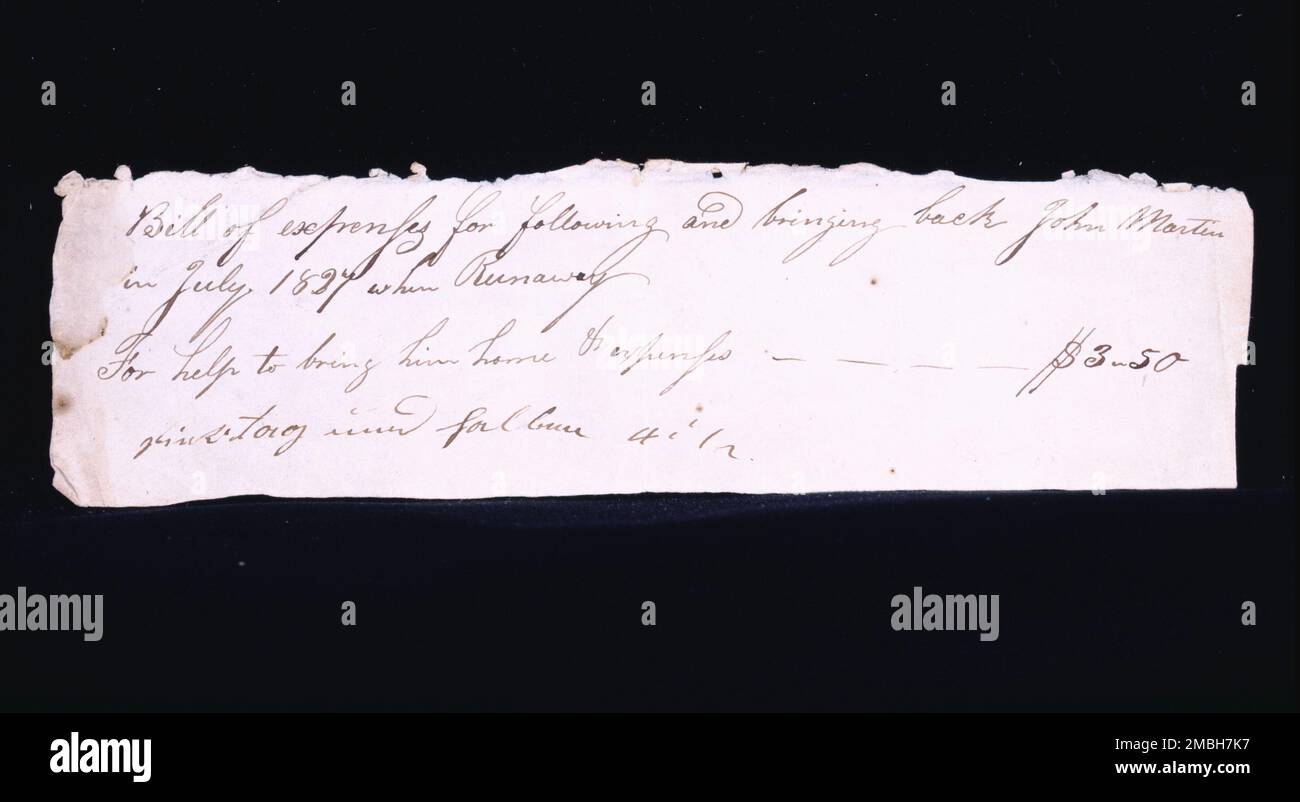 Bill of expenses for following and bringing back John Martin
in July. 1827 when Runaway
For help to bring him home & expenses — — — — $3"50
a
alamy
Image ID: 2MBH7K7
www.alamy.com